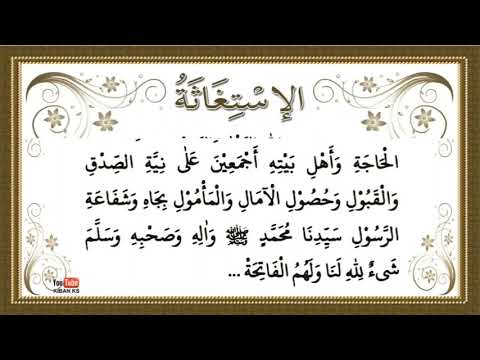 الإِسْتِغَاثَةُ
الْحَاجَةِ وَأَهْلِ بَيْتِهِ أَجْمَعِيْنَ عَلٰى نِيَّةِ الصِّدْقِ
وَالْقَبُوْلِ وَحُصُوْلِ الْآمَالِ وَالْمَأْمُوْلِ بِجَاهِ وَشَفَاعَةِ
الرَّسُوْلِ سَيِّدِنَا مُحَمَّدٍ ﷺ وَاٰلِهِ وَصَحْبِهِ وَسَلَّمَ
شَىءٌ لِلهِ لَنَا وَلَهُمُ الْفَاتِحَةْ ...
You Tube
KIBAN KS